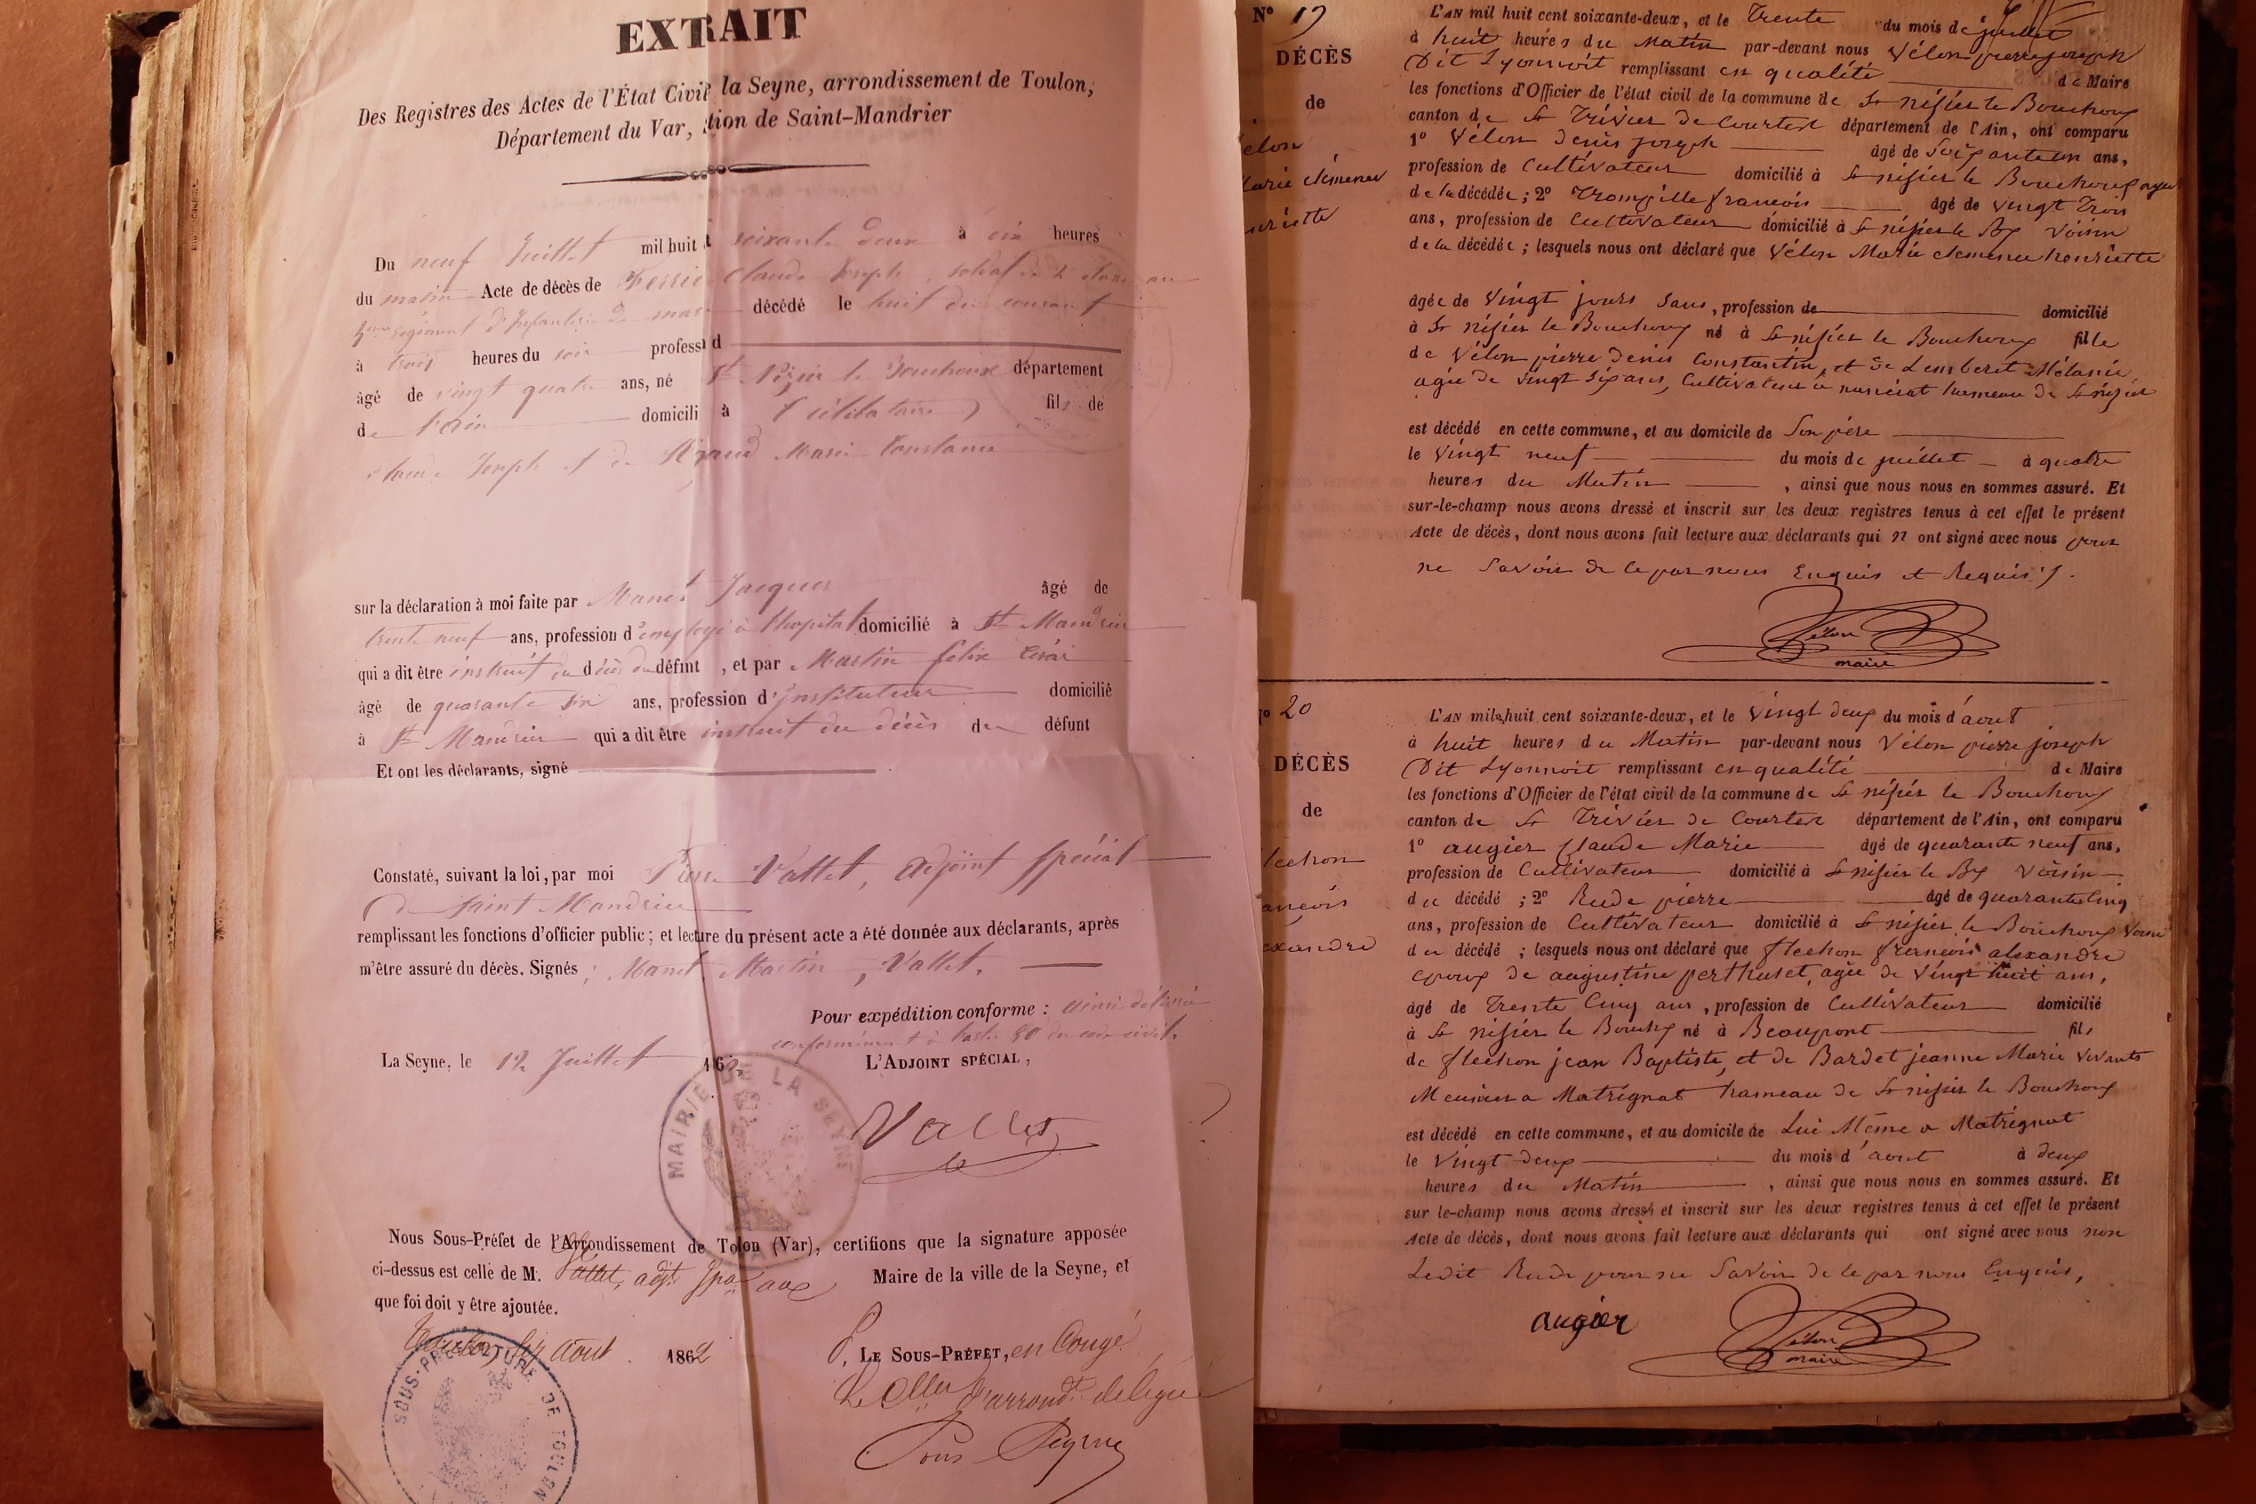 EXTRAIT
Des Registres des Actes de l'État Civil la Seyne, arrondissement de Toulon,
Département du Var, tion de Saint-Mandrier
Du neuf Juillet mil huit soixante deux à dix heures
du matin Acte de décès de Claude Joseph, soldat de 2e classe au
4eme régiment d'Infanterie de décédé le huit du courant
à trois heures du soir profess d
âgé de vingt quatre ans, né St Nizier le Bouchoux département
de l'ain domicili à (célibataire) fils de
Claude Joseph et de Marie Constance
sur la déclaration à moi faite par Manet Jacques âgé de
trente neuf ans, profession d'employé à l'hopital domicilié à St Mandrier
qui a dit être instruit du décès du défint , et par Martin felix César
âgé de quarante six ans, profession d'Instituteur domicilié
à St Mandrier qui a dit être instruit du décès du défunt
Et ont les déclarants, signé
Constaté, suivant la loi, par moi Pierre Vallet, adjoint spécial
de Saint Mandrier
remplissant les fonctions d'officier public ; et lecture du présent acte a été donnée aux déclarants, après
m'être assuré du décès. Signés ; Manet, Martin, Vallet.
Pour expédition conforme : ainsi délivré
conformément à l'art. 80 du code civil.
La Seyne, le 12 Juillet 1862 L'ADJOINT SPÉCIAL,
MAIRIE DE LA SEYNE
Vallet
Nous Sous-Préfet de l'Arrondissement de Tolon (Var), certifions que la signature apposée
ci-dessus est celle de M. Vallet, adjt. Maire de la ville de la Seyne, et
que foi doit y être ajoutée.
Toulon, août 1862 P. LE SOUS-PRÉFET, en Congé,
SOUS-PRÉFECTURE DE TOULON
Le d'arrondt. délégué
N° 19
DÉCÈS
de
elon
arie clémence
nriette
L'AN mil huit cent soixante-deux, et le Trente du mois de juillet
à huit heures du Matin par-devant nous Vélon pierre joseph
Dit Lyonnoit remplissant en qualité de Maire
les fonctions d'Officier de l'état civil de la commune de St nisier le Bouchoux
canton de St Trivier de Courtes département de l'Ain, ont comparu
1° Vélon denis joseph âgé de Soixante un ans,
profession de Cultivateur domicilié à St nisier le Bouchoux ayeu
de la décédée ; 2° françois âgé de vingt Trois
ans, profession de Cultivateur domicilié à St nisier le Bx voisin
de la décédée ; lesquels nous ont déclaré que Vélon Marie clemence henriette
âgée de Vingt jours Sans, profession de domicilié
à St nisier le Bouchoux né à St nisier le Bouchoux fille
de Vélon pierre denis Constantin, et de Lemberet Mélanie
agée de vingt Six ans, Cultivateur a hameau de St nisier
est décédé en cette commune, et au domicile de Son père
le Vingt neuf du mois de juillet à quatre
heures du Matin , ainsi que nous nous en sommes assuré. Et
sur-le-champ nous avons dressé et inscrit sur les deux registres tenus à cet effet le présent
Acte de décès, dont nous avons fait lecture aux déclarants qui n ont signé avec nous pour
ne Savoir de ce par nous Enquis et Requis.
Vélon
maire
N° 20
DÉCÈS
de
lechon
ançois
exandre
L'AN mil huit cent soixante-deux, et le Vingt deux du mois d'aout
à huit heures du Matin par-devant nous Vélon pierre joseph
Dit Lyonnoit remplissant en qualité de Maire
les fonctions d'Officier de l'état civil de la commune de St nisier le Bouchoux
canton de St Trivier de Courtes département de l'Ain, ont comparu
1° augier Claude Marie âgé de quarante neuf ans,
profession de Cultivateur domicilié à St nisier le Bx voisin
du décédé ; 2° Rude pierre âgé de quarante Cinq
ans, profession de Cultivateur domicilié à St nisier le Bouchoux Voisin
du décédé ; lesquels nous ont déclaré que flechon françois alexandre
epoux de augustine perthuset, agée de vingt huit ans,
âgé de Trente Cinq ans, profession de Cultivateur domicilié
à St nisier le Bouchx né à Beaupont fils
de flechon jean Baptiste, et de Bardet jeanne Marie vivants
Meunier a Matrignat hameau de St nisier le Bouchoux
est décédé en cette commune, et au domicile de Lui Même a Matrignat
le Vingt deux du mois d'aout à deux
heures du Matin , ainsi que nous nous en sommes assuré. Et
sur le-champ nous avons dressé et inscrit sur les deux registres tenus à cet effet le présent
Acte de décès, dont nous avons fait lecture aux déclarants qui ont signé avec nous non
Ledit Rude pour ne Savoir de ce par nous Enquis,
augier
Vélon
maire